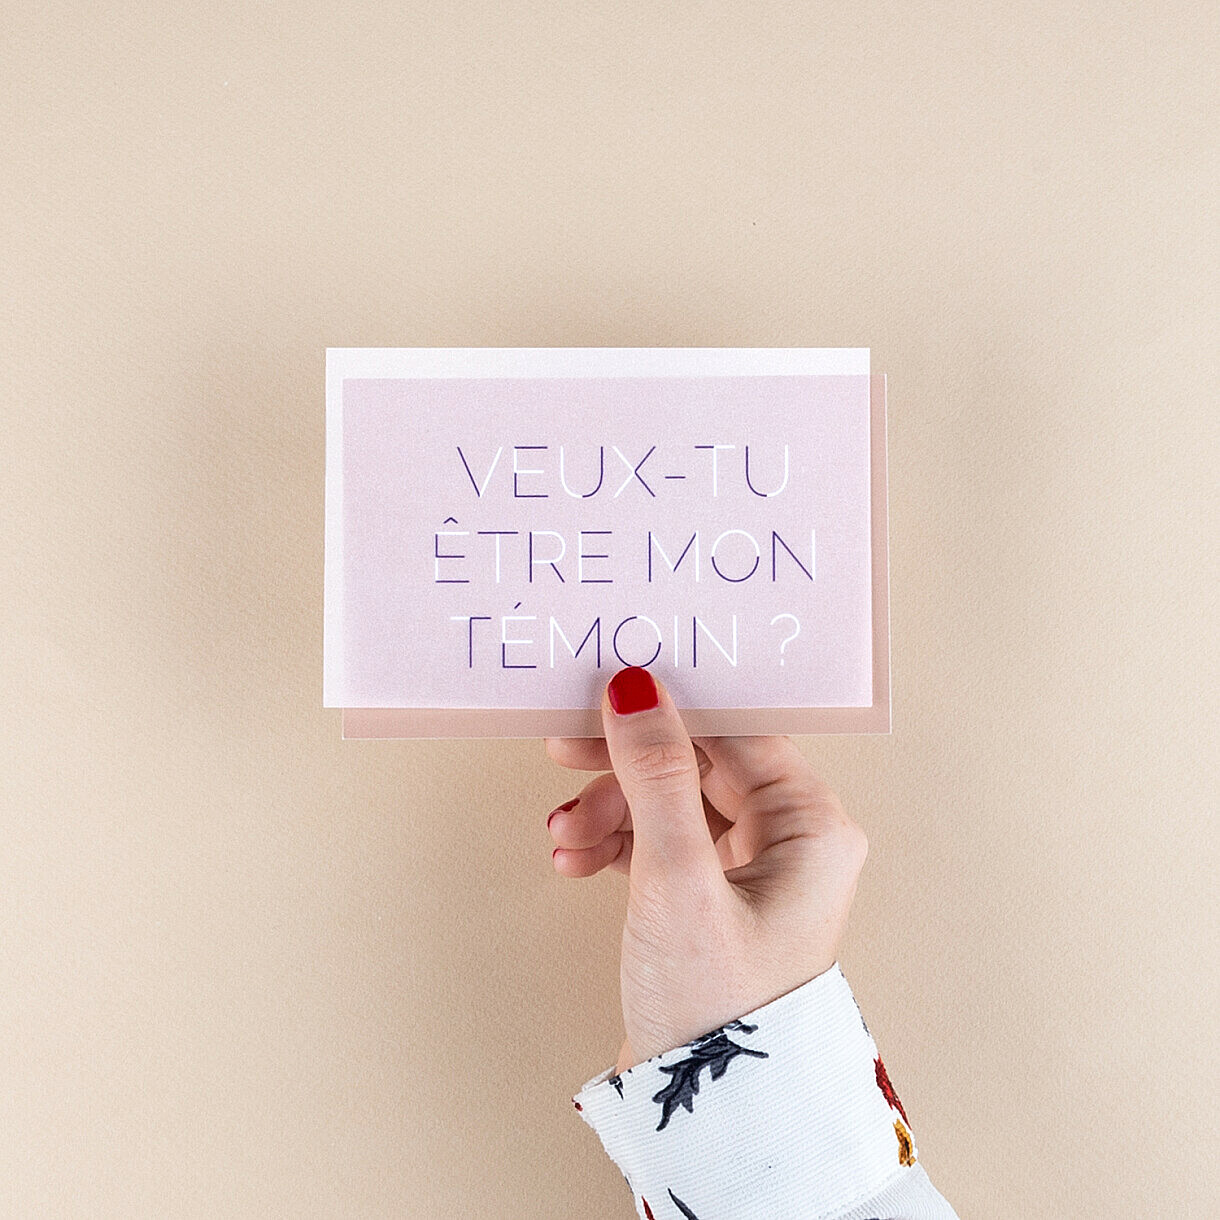 VEUX-TU
ÊTRE MON
TÉMOIN ?